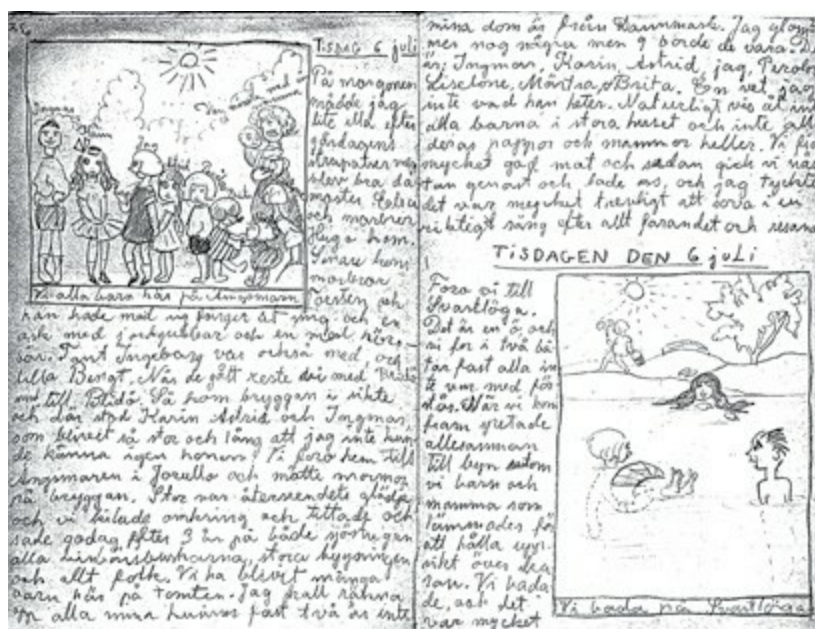 TISDAG 6 juli
På morgonen
mådde jag
lite illa efter
gårdagens
strapatser men
blev bra då
moster
och morbror
Hugo kom.
Senare kom
morbror
Ingmar
Karin
Jag
Vi alla barn här på Ängsmarn
Torsten och
han hade med sig färger åt mig och en
ask med jordgubbar och en med körs-
bär. Tant Ingeborg var också med och
lilla Bengt. När de gått reste vi med
till Blidö. Så kom bryggan i sikte
och där stod Karin Astrid och Ingmar
som blivit så stor och lång att jag inte kun
de känna igen honom. Vi foro hem till
Ängsmaren i Jorullo och mötte mormor
på bryggan. Stor var återseendets glädje
och vi kilade omkring och tittade och
sade godag efter 3 år på både sjöstugan
alla vinbärsbuskarna, stora byggningen
och allt folk. Vi ha blivit många
barn här på tomten. Jag skall räkna
alla mina kusiner fast två är inte
mina dom är från Dannmark. Jag glöm
mer nog några men 9 borde de vara. D
är: Ingmar, Karin, Astrid, jag, Perolo
Liselone, Märtra, Brita. En vet jag
inte vad han heter. Naturligt vis är int
alla barna i stora huset och inte all
deras pappor och mammor heller. Vi fic
mycket god mat och sedan gick vi näs
tan genast och lade oss, och jag tyckte
det var mycket trevligt att sova i en
riktigt säng efter allt farandet och resand
TISDAGEN DEN 6 juLi
Foro vi till
Svartlöga.
Det är en ö och
vi for i två bå
tar fast alla in
te var med för
stås. När vi kom
fram gretade
allesamman
till byn utom
vi barn och
mamma som
lämnades för
att hålla upp-
sikt över bra
san. Vi bada
de, och det
var mycket
Vi bada på Svartlöga